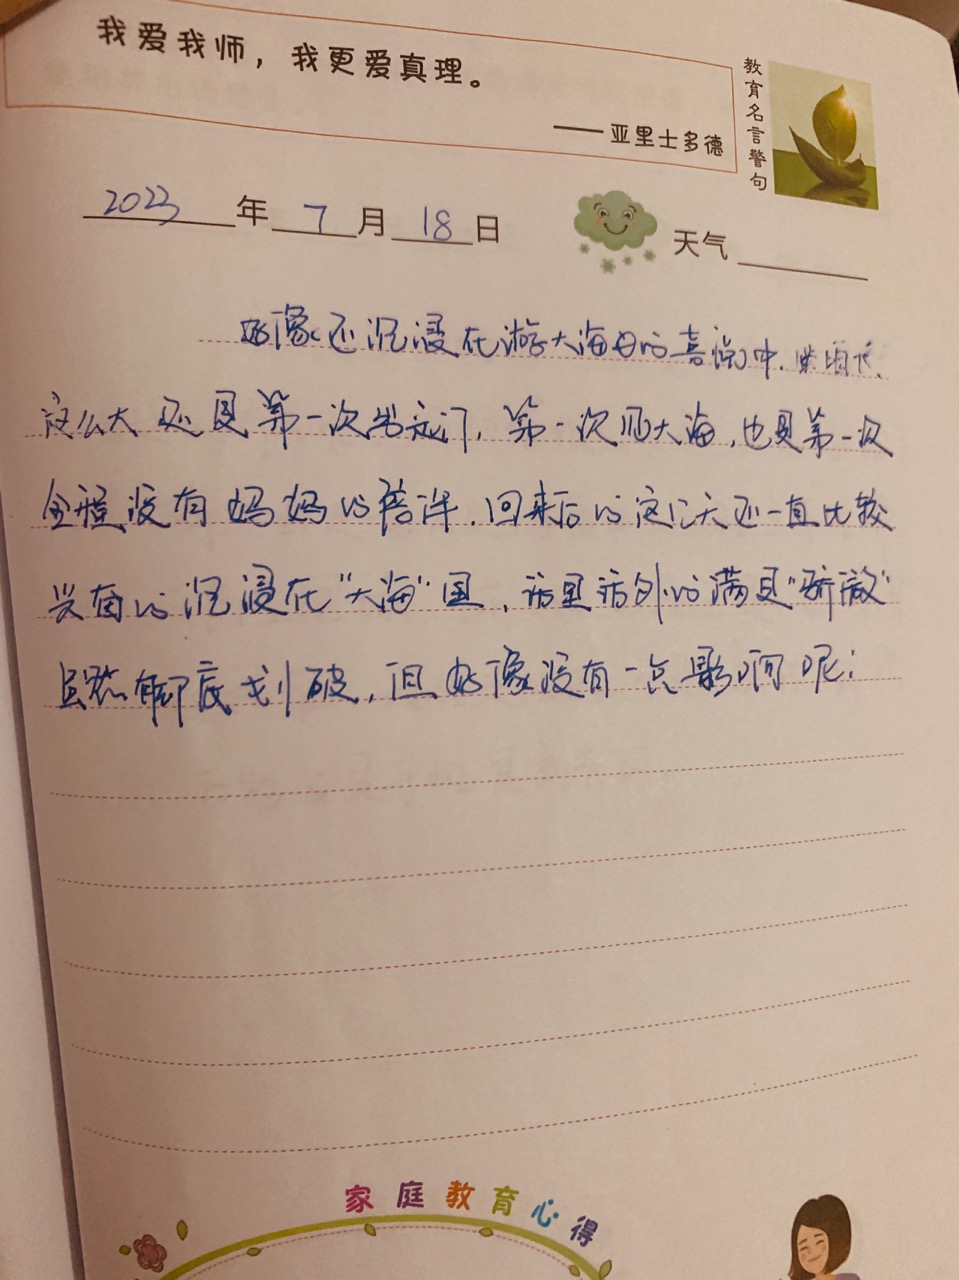 我爱我师，我更爱真理。
——亚里士多德
教育名言警句
2023年7月18日 天气
好像还沉浸在游大海的喜悦中.
这么大还是第一次出远门，第一次见大海，也是第一次
全程没有妈妈的陪伴.回来后的这几天还一直比较
兴奋的沉浸在“大海”里，话里话外的满是“骄傲”
虽然脚底划破，但好像没有一点影响呢;
家庭教育心得